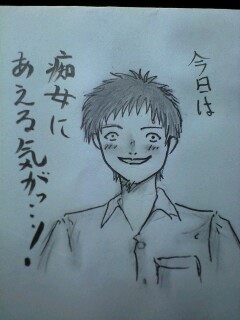 今日は
痴女に
あえる気がっ…!